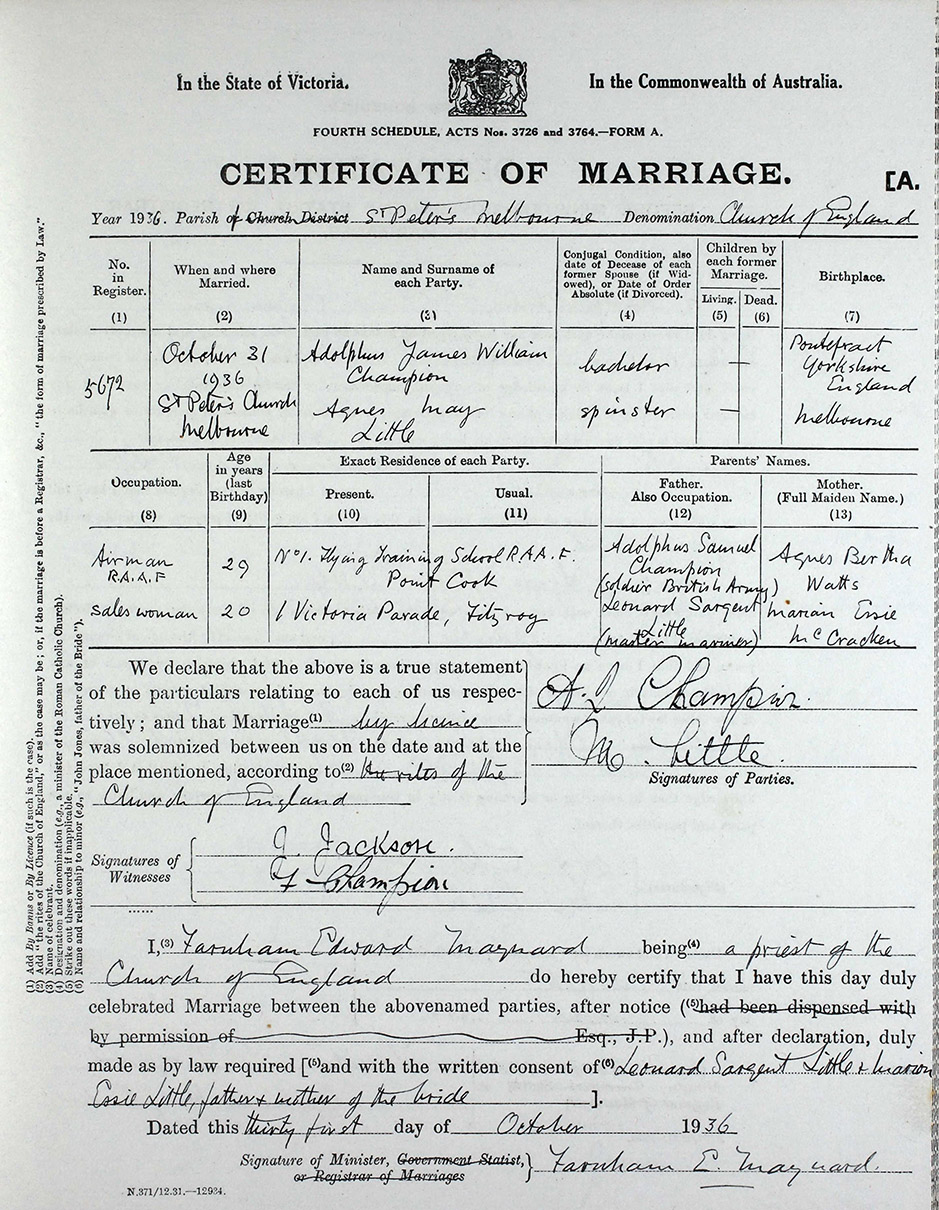 In the State of Victoria.
In the Commonwealth of Australia.
FOURTH SCHEDULE, ACTS Nos. 3726 and 3764.—FORM A.
CERTIFICATE OF MARRIAGE.
[A.
Year 1936. Parish of Church District St Peter's Melbourne Denomination Church of England
No. in Register. (1)
When and where Married. (2)
Name and Surname of each Party. (3)
Conjugal Condition, also date of Decease of each former Spouse (if Widowed), or Date of Order Absolute (if Divorced). (4)
Children by each former Marriage.
Living. (5)
Dead. (6)
Birthplace. (7)
5672
October 31
1936
St Peter's Church
Melbourne
Adolphus James William
Champion
Agnes May
Little
bachelor
spinster
—
—
Pontefract
Yorkshire
England
Melbourne
Occupation. (8)
Age in years (last Birthday) (9)
Exact Residence of each Party.
Present. (10)
Usual. (11)
Parents' Names.
Father. Also Occupation. (12)
Mother. (Full Maiden Name.) (13)
Airman
R.A.A.F
29
No 1. Flying Training School R.A.A.F.
Point Cook
Adolphus Samuel
Champion
(soldier British Army)
Agnes Bertha
Watts
sales woman
20
1 Victoria Parade, Fitzroy
Leonard Sargent
Little
(master mariner)
Marian Essie
McCracken
We declare that the above is a true statement
of the particulars relating to each of us respec-
tively; and that Marriage(1) by licence
was solemnized between us on the date and at the
place mentioned, according to(2) the rites of the
Church of England
A J Champion.
M. Little.
Signatures of Parties.
Signatures of
Witnesses
J. Jackson.
Champion
I,(3) Farnham Edward Maynard being(4) a priest of the
Church of England do hereby certify that I have this day duly
celebrated Marriage between the abovenamed parties, after notice ((5)had been dispensed with
by permission of Esq., J.P.), and after declaration, duly
made as by law required [(5)and with the written consent of(6) Leonard Sargent Little & Marion
Essie Little, father & mother of the bride ].
Dated this thirty first day of October 1936
Signature of Minister, Government Statist,
or Registrar of Marriages
Farnham E. Maynard.
N.371/12.31.—12934.
(1) Add By Banns or By Licence (if such is the case).
(2) Add "the rites of the Church of England," or as the case may be; or, if the marriage is before a Registrar, &c., "the form of marriage prescribed by Law."
(3) Name of celebrant.
(4) Designation and denomination (e.g., a minister of the Roman Catholic Church).
(5) Strike out these words if inapplicable.
(6) Name and relationship to minor (e.g., "John Jones, father of the Bride").